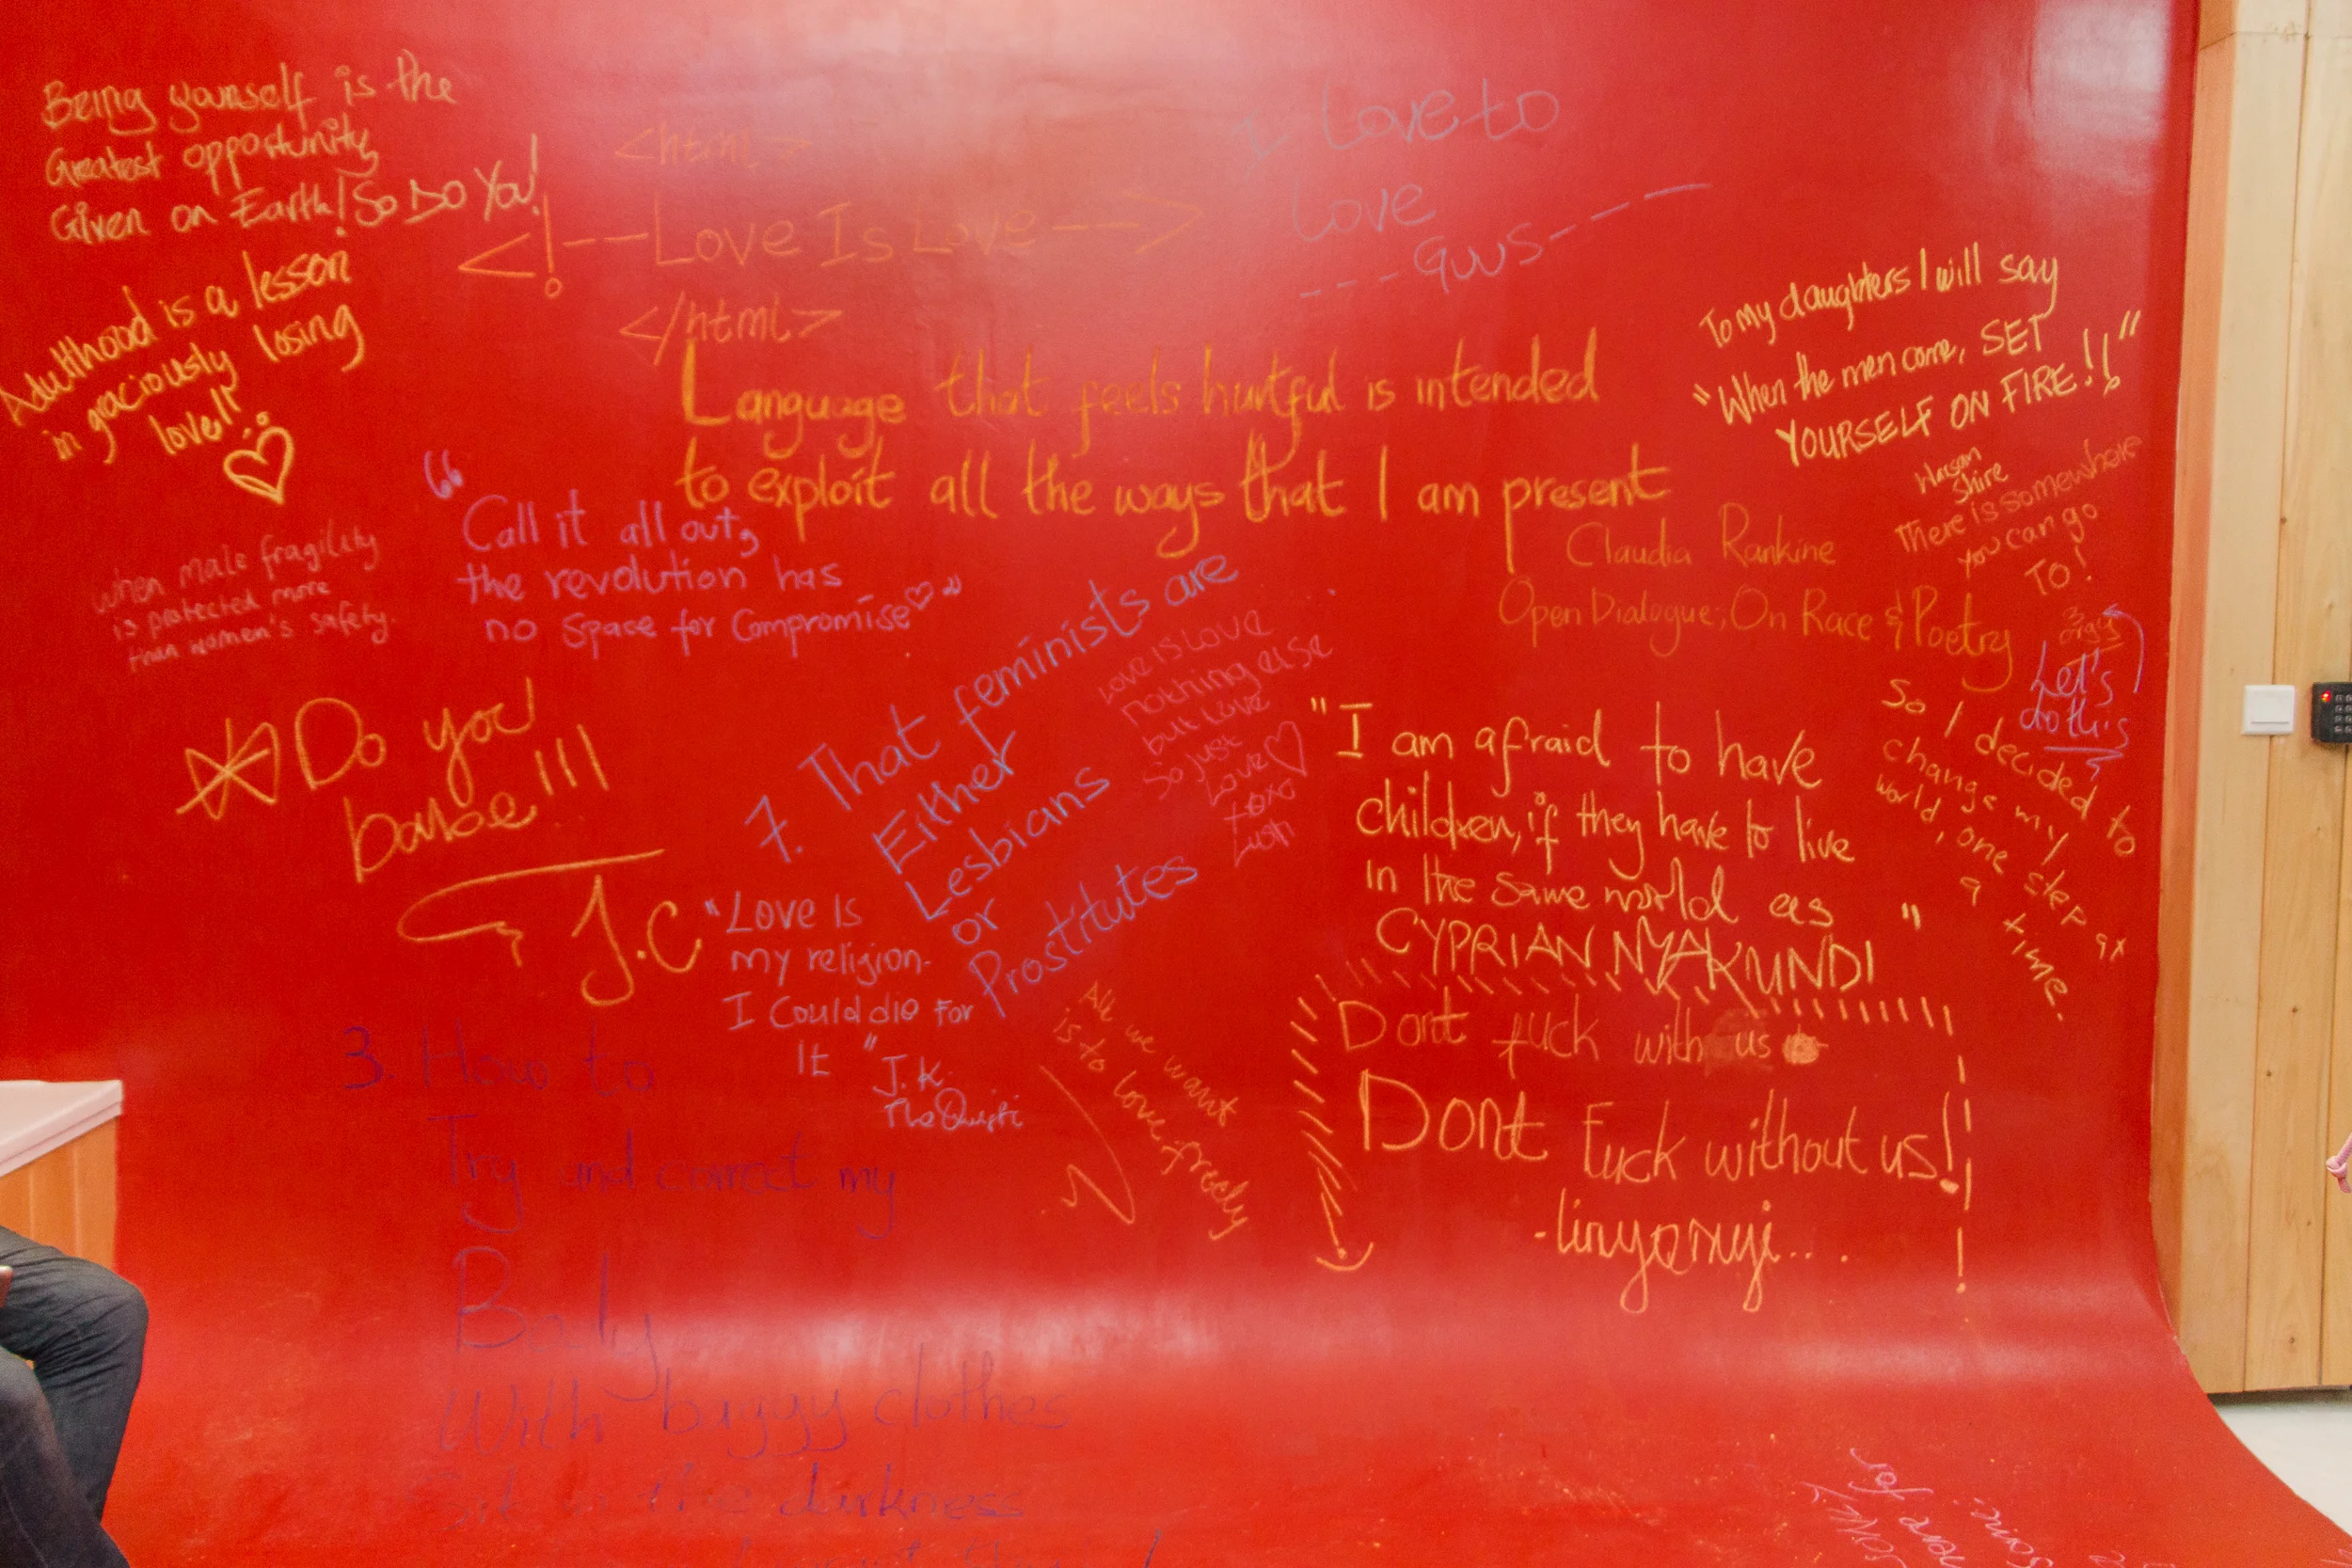 Being yourself is the
Greatest opportunity
Given on Earth! So DO YOU!
Adulthood is a lesson
in graciously losing
love!!
<html>
<!---Love Is Love--->
</html>
I Love to
Love
---GUUS----
Language that feels hurtful is intended
to exploit all the ways that I am present
Claudia Rankine
Open Dialogue; On Race & Poetry
To my daughters I will say
"When the men come, SET
YOURSELF ON FIRE!!"
Warsan
Shire
There is somewhere
you can go
TO!
3
orgy
Let's
do this
So I decided to
change my
world, one step at
a time.
When male fragility
is protected more
than women's safety.
"Call it all out,
the revolution has
no space for Compromise"
Do you
babe!!!
J.C
7. That feminists are
Either
Lesbians
or
Prostitutes
Love is Love
nothing else
but Love
So just
Love
xoxo
"I am afraid to have
children, if they have to live
in the same world as
CYPRIAN NYAKUNDI"
"Love Is
my religion-
I Could die For
It"
J.K.
All we want
is to love freely
Dont fuck with us
Dont Fuck without us!
3. How to
Try and correct my
Body
With baggy clothes
in the darkness